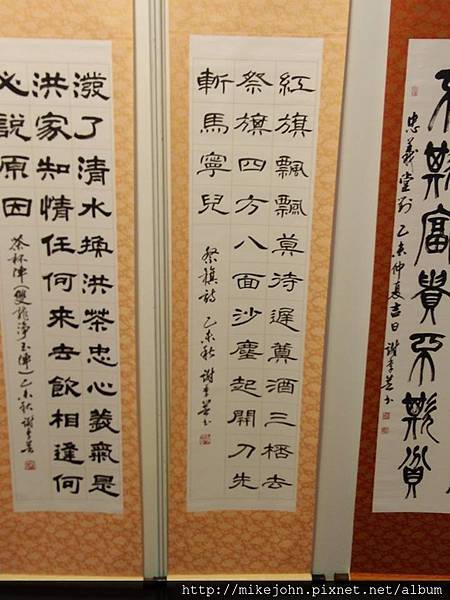 不欺富貴不欺貧
忠義堂對 乙未仲夏吉日 謝季芸书
紅旗飄飄莫待遲奠酒三桮去
祭旗四方八面沙塵起開刀先
斬馬寧兒
祭旗詩 乙未秋 謝季芸书
潑了清水換洪茶忠心義氣是
洪家知情任何來去飲相逢何
必說原因
茶杯陣(雙龍淨玉陣)乙未秋 謝季芸
http://mikejohn.pixnet.net/album